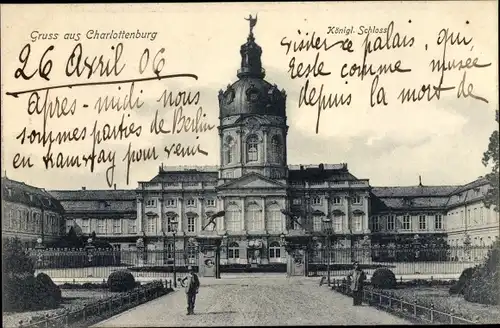 Gruss aus Charlottenburg
Königl. Schloss
26 Avril 06
Après-midi nous
sommes parties de Berlin
en tramway pour venir
visiter le palais, qui,
reste comme musée
depuis la mort de